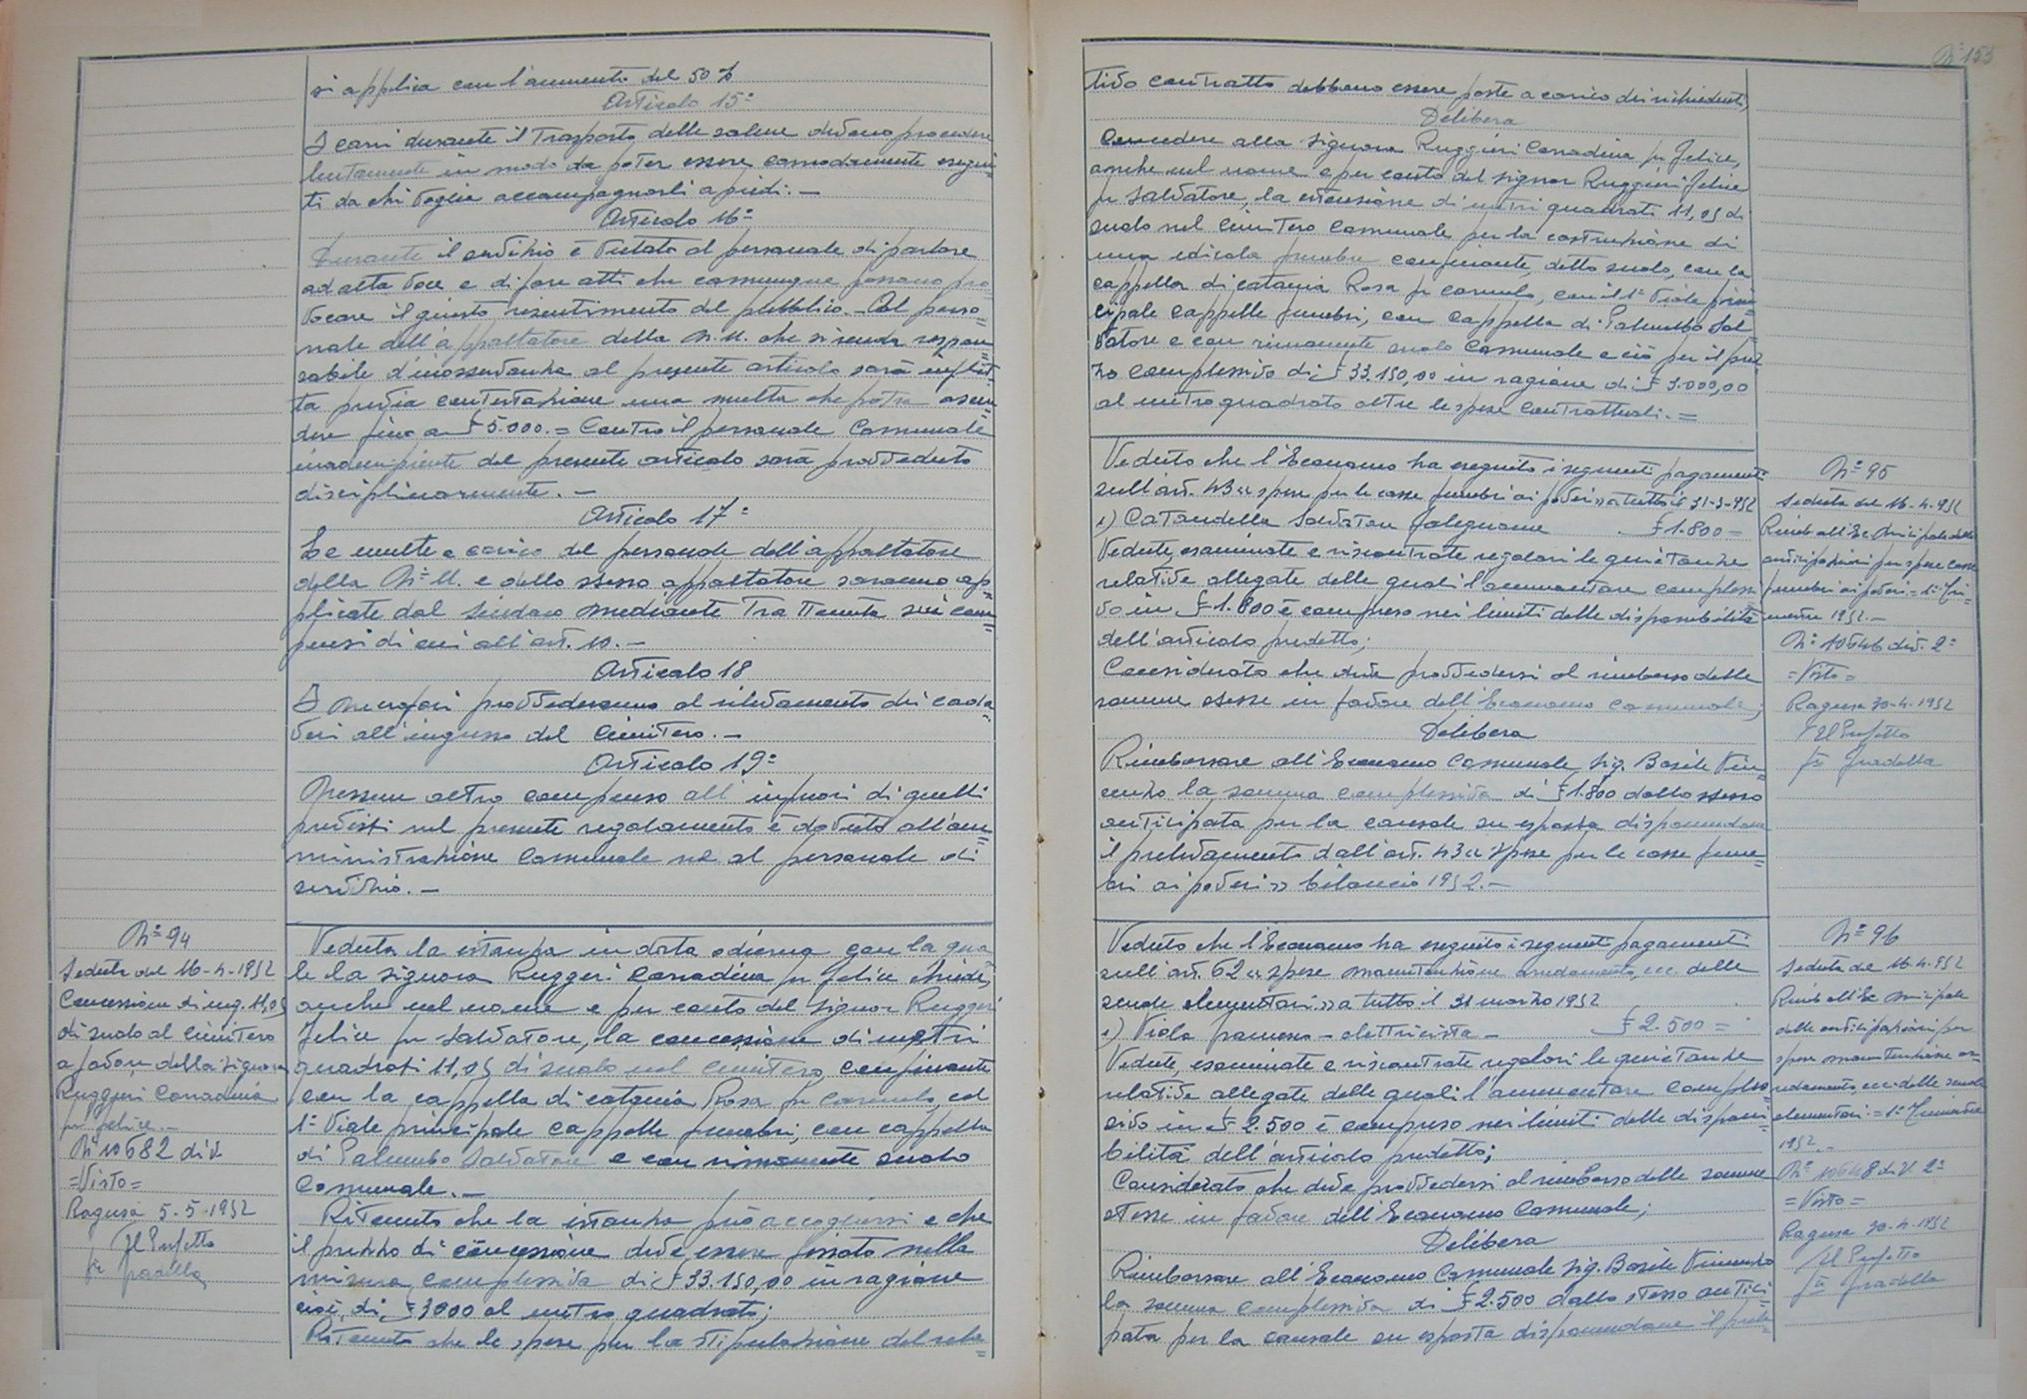 si applica con l'aumento del 50%
Articolo 15°
I carri durante il trasporto delle salme devono procedere
lentamente in modo da poter essere comodamente segui=
ti da chi voglia accompagnarli a piedi.—
Articolo 16°
Durante il servizio è vietato al personale di parlare
ad alta voce e di fare atti che comunque possano pro=
vocare il giusto risentimento del pubblico.— Al perso=
nale dell'appaltatore della N.U. che si renda respon=
sabile d'inosservanza al presente articolo sarà inflit=
ta previa contestazione una multa che potrà ascen=
dere fino a £ 5.000.= Contro il personale Comunale
inadempiente del presente articolo sarà provveduto
disciplinarmente.—
Articolo 17°
Le multe a carico del personale dell'appaltatore
della N.U. e dello stesso appaltatore saranno ap=
plicate dal Sindaco mediante trattenuta sui com=
pensi di cui all'art. 10.—
Articolo 18
I necrofori provvederanno al rilevamento dei cada=
veri all'ingresso del Cimitero.—
Articolo 19°
Nessun altro compenso all'infuori di quelli
previsti nel presente regolamento è dovuto all'am=
ministrazione Comunale nè al personale di
servizio.—
N° 94
Seduta del 16-4-1952
Concessione di mq. 11,05
di suolo al cimitero
a favore della Signora
Ruggeri Corradina
fu Felice.—
N° 10682 div
=Visto=
Ragusa 5-5-1952
Il Prefetto
fu Gradella
Veduta la istanza in data odierna con la qua=
le la signora Ruggeri Corradina fu Felice chiede,
anche nel nome e per conto del signor Ruggeri
Felice fu Salvatore, la concessione di metri
quadrati 11,05 di suolo nel Cimitero, confinante
con la cappella di Catania Rosa fu Carmelo, col
1° Viale principale cappelle funebri, con cappella
di Palumbo Salvatore e con rimanente suolo
Comunale.—
Ritenuto che la istanza può accogliersi e che
il prezzo di concessione deve essere fissato nella
misura complessiva di £ 33.150,00 in ragione
cioè di £ 3000 al metro quadrato;
Ritenuto che le spese per la stipulazione del rela=
N° 153
tivo contratto debbono essere poste a carico dei richiedenti;
Delibera
Concedere alla signora Ruggieri Corradina fu Felice,
anche nel nome e per conto del signor Ruggieri Felice
fu Salvatore, la estensione di metri quadrati 11,05 di
suolo nel Cimitero Comunale per la costruzione di
una edicola funebre confinante, detto suolo, con la
cappella di Catania Rosa fu Carmelo, con il 1° Viale prin=
cipale cappelle funebri, con cappella di Palumbo Sal=
vatore e con rimanente suolo Comunale e ciò per il prez=
zo complessivo di £ 33.150,00 in ragione di £ 3.000,00
al metro quadrato oltre le spese contrattuali.=
Veduto che l'Economo ha eseguito i seguenti pagamenti
sull'art. 43 « spese per le casse funebri ai poveri » a tutto il 31-3-952
1) Catandella Salvatore falegname £ 1.800=
Vedute, esaminate e riscontrate regolari le quietanze
relative allegate delle quali l'ammontare complessi
vo in £ 1.800 è compreso nei limiti delle disponibilità
dell'articolo predetto;
Considerato che deve provvedersi al rimborso delle
somme stesse in favore dell'Economo Comunale;
Delibera
Rimborsare all'Economo Comunale Sig. Basile Vin=
cenzo la somma complessiva di £ 1.800 dallo stesso
anticipata per la causale su esposta disponendone
il prelevamento dall'art. 43 « spese per le casse fune=
bri ai poveri » bilancio 1952.—
N° 95
Seduta del 16-4-952
Rimb. all'Ec. Municipale delle
anticipazioni per spese casse
funebri ai poveri = 1° Tri=
mestre 1952.—
N° 10646 div. 2°
=Visto=
Ragusa 30-4-1952
Il Prefetto
fu Gradella
Veduto che l'Economo ha eseguito i seguenti pagamenti
sull'art. 62 « spese manutenzione arredamento, ecc. delle
scuole elementari » a tutto il 31 marzo 1952
1) Viola Francesco – elettricista – £ 2.500=
Vedute, esaminate e riscontrate regolari le quietanze
relative allegate delle quali l'ammontare comples
sivo in £ 2.500 è compreso nei limiti delle disponi=
bilità dell'articolo predetto;
Considerato che deve provvedersi al rimborso delle somme
stesse in favore dell'Economo Comunale;
Delibera
Rimborsare all'Economo Comunale Sig. Basile Vincenzo
la somma complessiva di £ 2.500 dallo stesso antici=
pata per la causale su esposta disponendone il prele=
N° 96
Seduta del 16-4-952
Rimb. all'Ec. Municipale
delle anticipazioni per
spese manutenzione ar=
redamento, ecc. delle scuole
elementari = 1° Trimestre
1952.—
N° 10648 div 2°
=Visto=
Ragusa 30-4-1952
Il Prefetto
fu Gradella